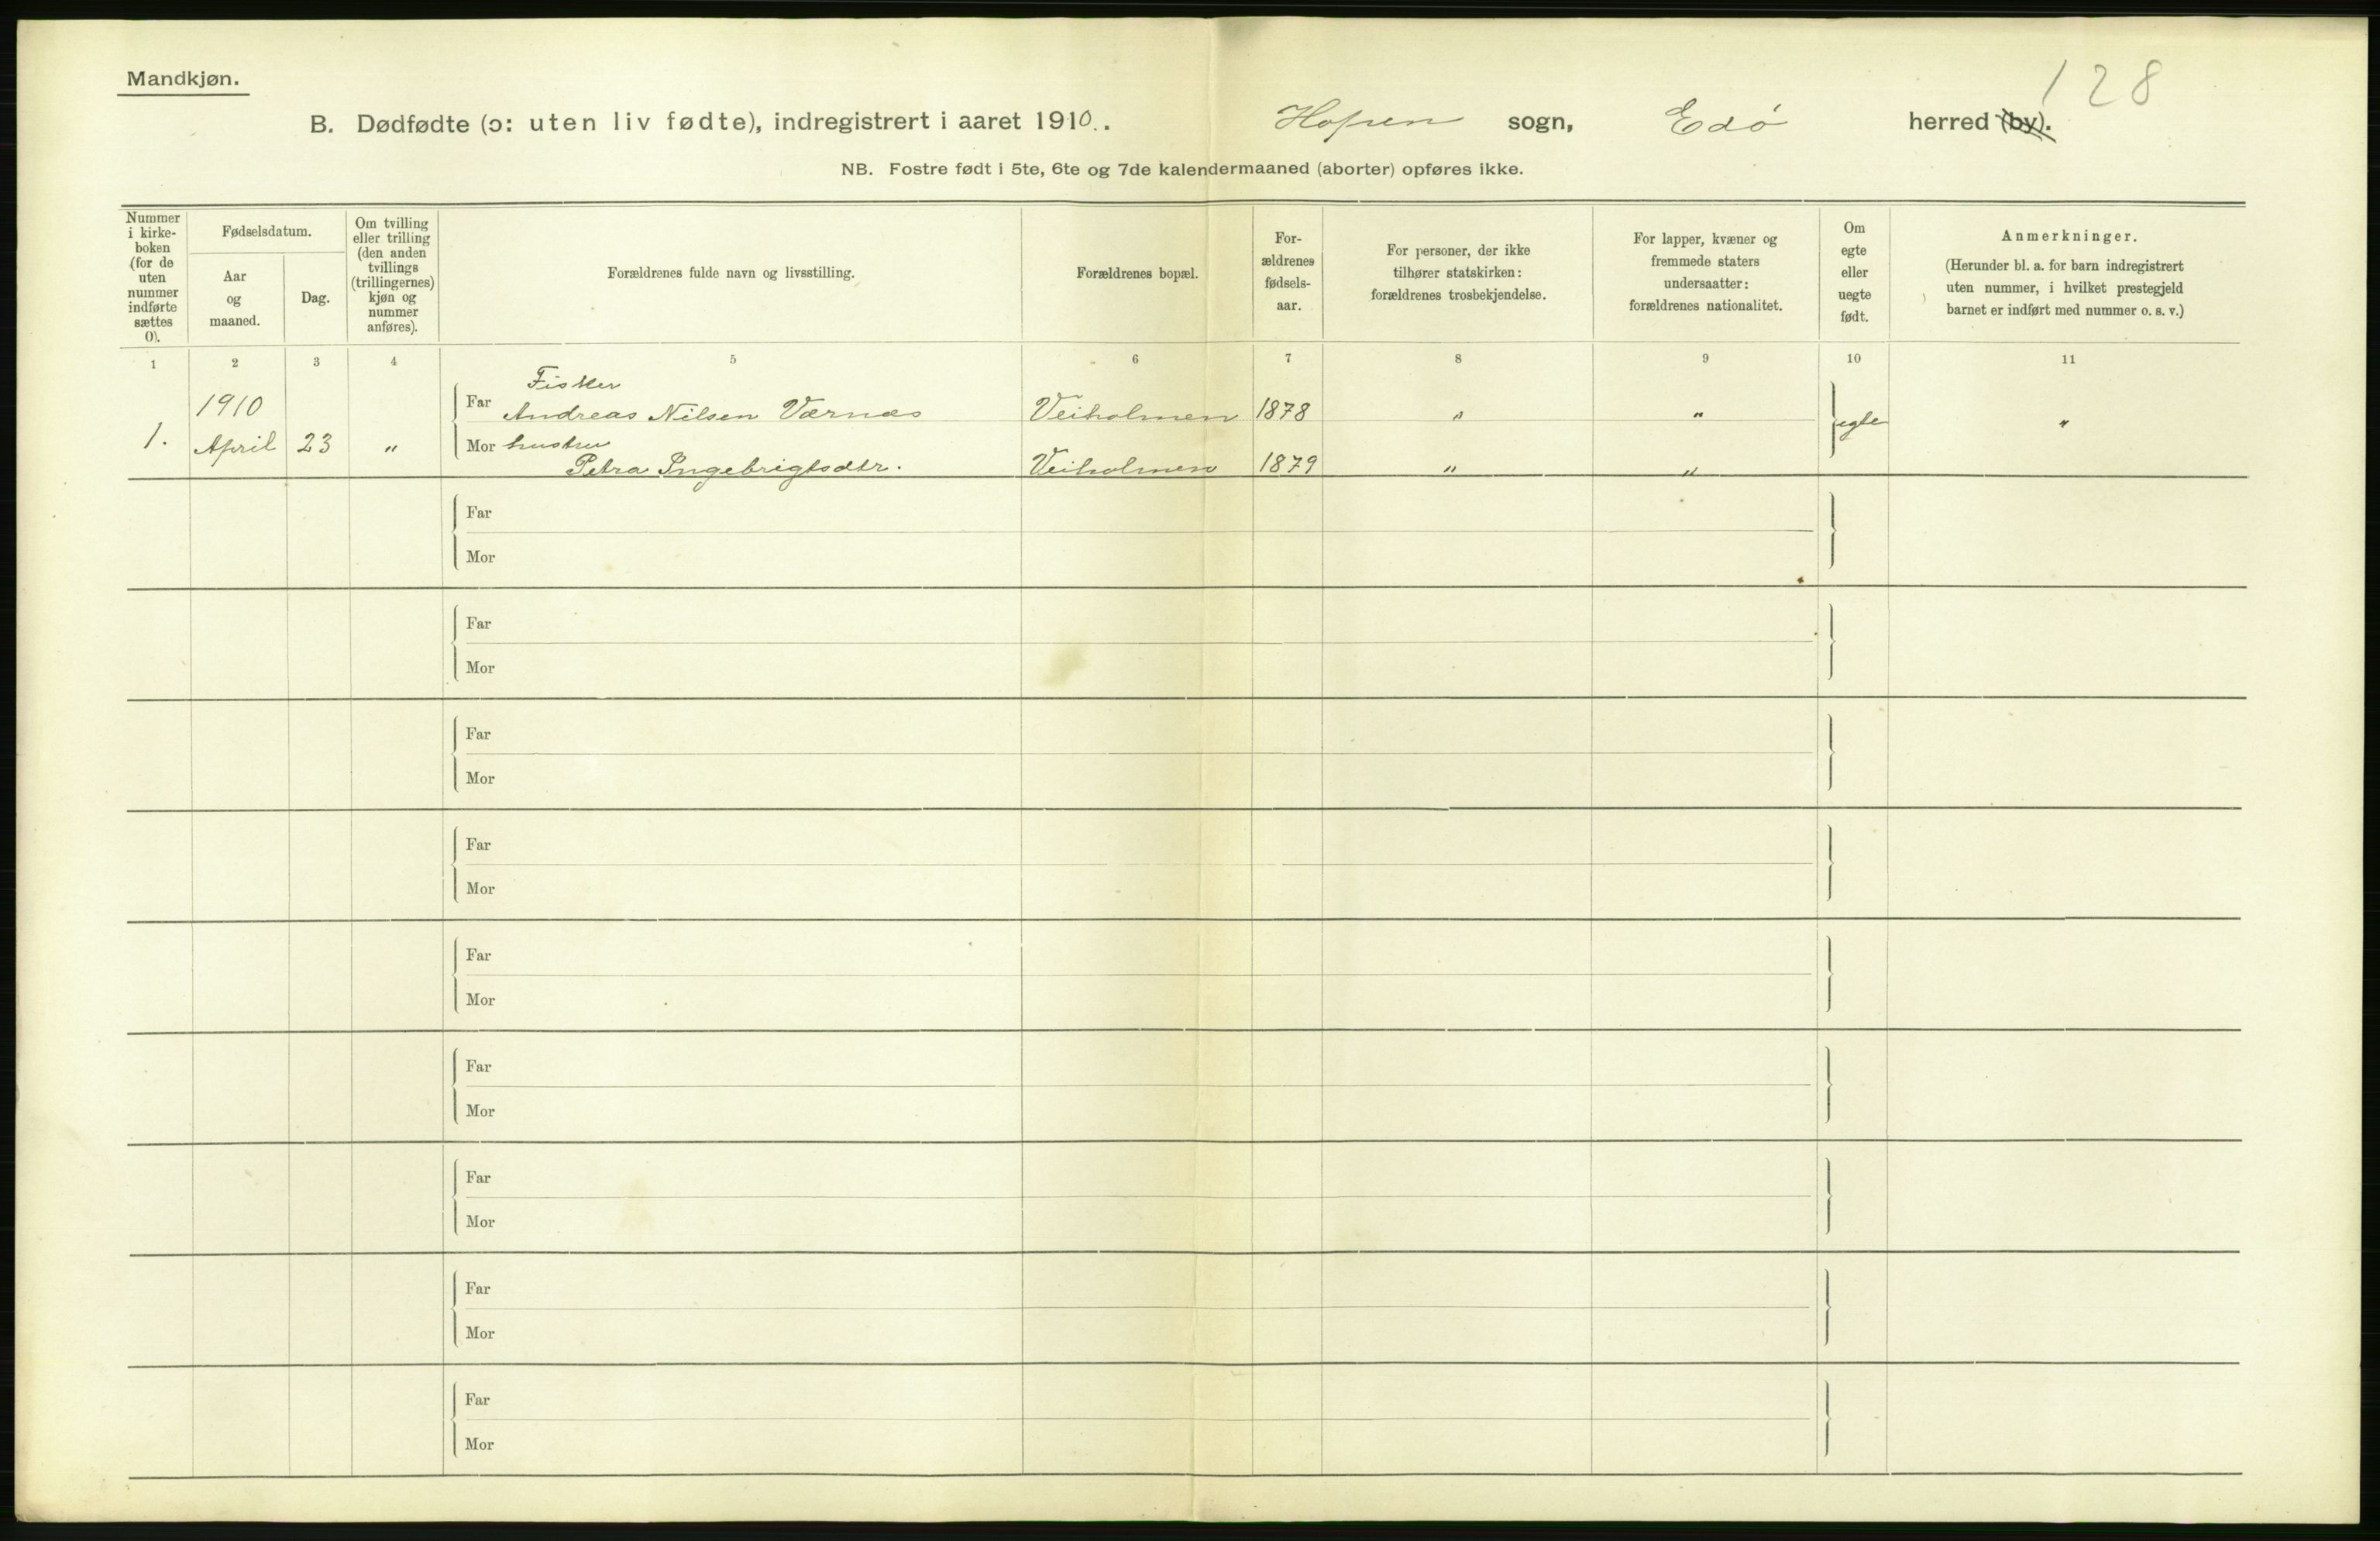 128
Mandkjøn.
B. Dødfødte (ɔ: uten liv fødte), indregistrert i aaret 1910. . Hopen sogn, Edø herred (by).
NB. Fostre født i 5te, 6te og 7de kalendermaaned (aborter) opføres ikke.
Nummer
i kirke-
boken
(for de
uten
nummer
indførte
sættes
0).
Fødselsdatum.
Aar
og
maaned.
Dag.
Om tvilling
eller trilling
(den anden
tvillings
(trillingernes)
kjøn og
nummer
anføres).
Forældrenes fulde navn og livsstilling.
Forældrenes bopæl.
For-
ældrenes
fødsels-
aar.
For personer, der ikke
tilhører statskirken:
forældrenes trosbekjendelse.
For lapper, kvæner og
fremmede staters
undersaatter:
forældrenes nationalitet.
Om
egte
eller
uegte
født.
Anmerkninger.
(Herunder bl. a. for barn indregistrert
uten nummer, i hvilket prestegjeld
barnet er indført med nummer o. s. v.)
1 2 3 4 5 6 7 8 9 10 11
Fisker
1910 Far Andreas Nilsen Værnæs Veiholmen 1878 " "
1. April 23 " Mor hustru egte "
Petra Ingebrigtsdtr. Veiholmen 1879 " "
Far
Mor
Far
Mor
Far
Mor
Far
Mor
Far
Mor
Far
Mor
Far
Mor
Far
Mor
Far
Mor